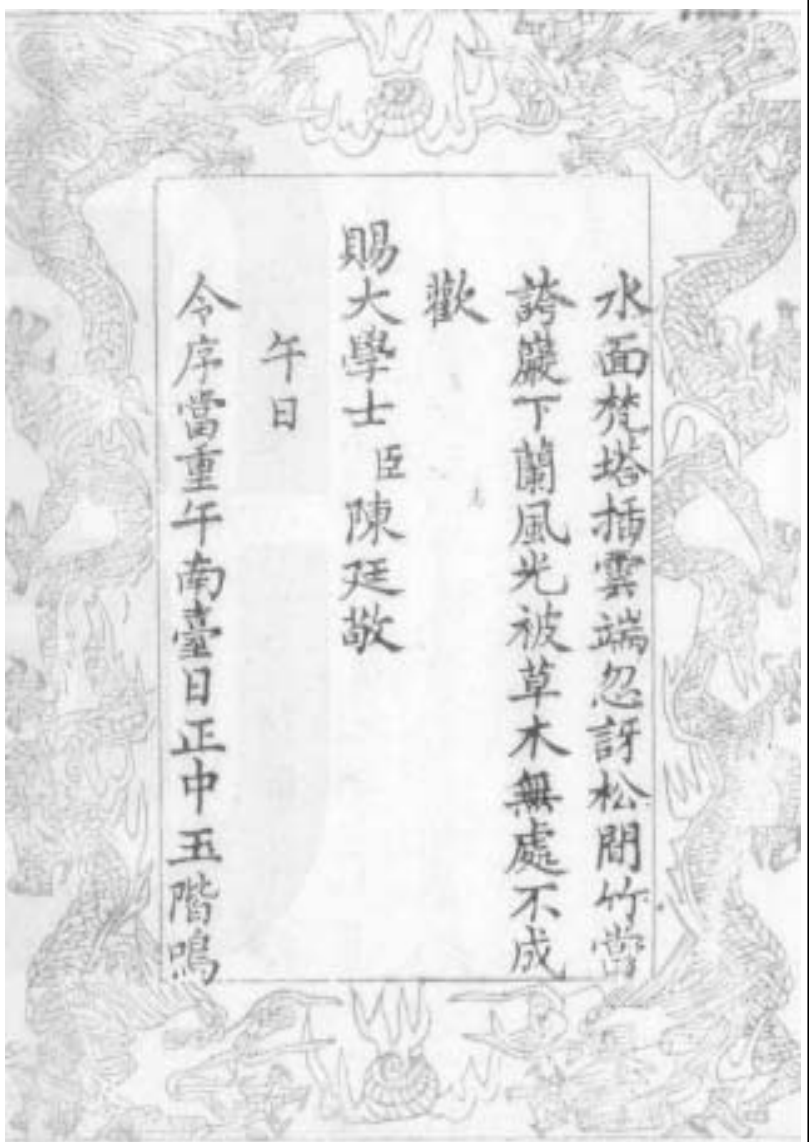 水面梵塔插雲端忽訝松間竹嘗
誇巖下蘭風光被草木無處不成
歡
賜大學士臣陳廷敬
午日
令序當重午南臺日正中玉階鳴